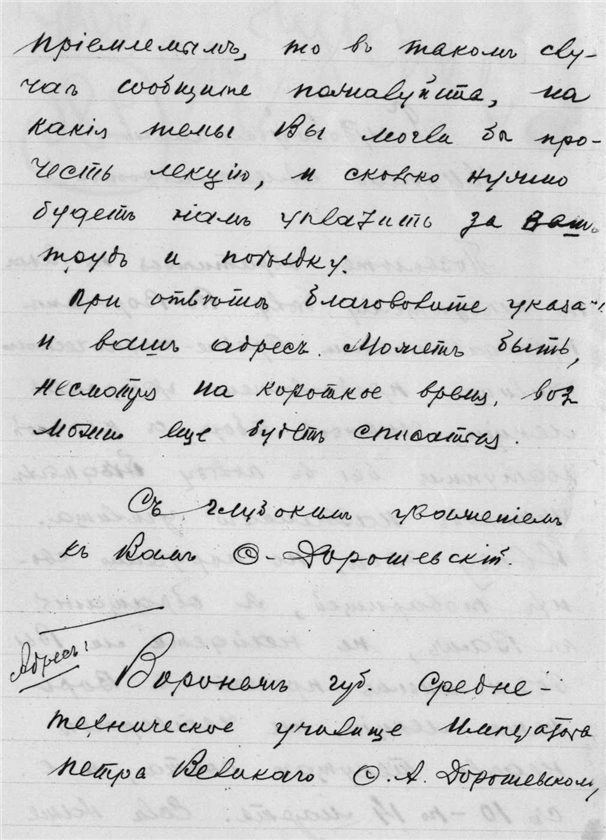 пріемлемымъ, то въ такомъ слу-
чаѣ сообщите пожалуйста, на
какія темы Вы могли бы про-
честь лекцію, и сколько нужно
будетъ намъ уплатить за Вашъ
трудъ и поѣздку.
При отвѣтѣ благоволите указать
и вашъ адресъ. Можетъ быть,
несмотря на короткое время, воз
можно еще будетъ списаться.
Съ глубокимъ уваженіемъ
къ Вамъ Ѳ. Дорошевскій.
Адресъ:
Воронежъ губ. Средне-
техническое училище Императора
Петра Великаго Ѳ. А. Дорошевскому